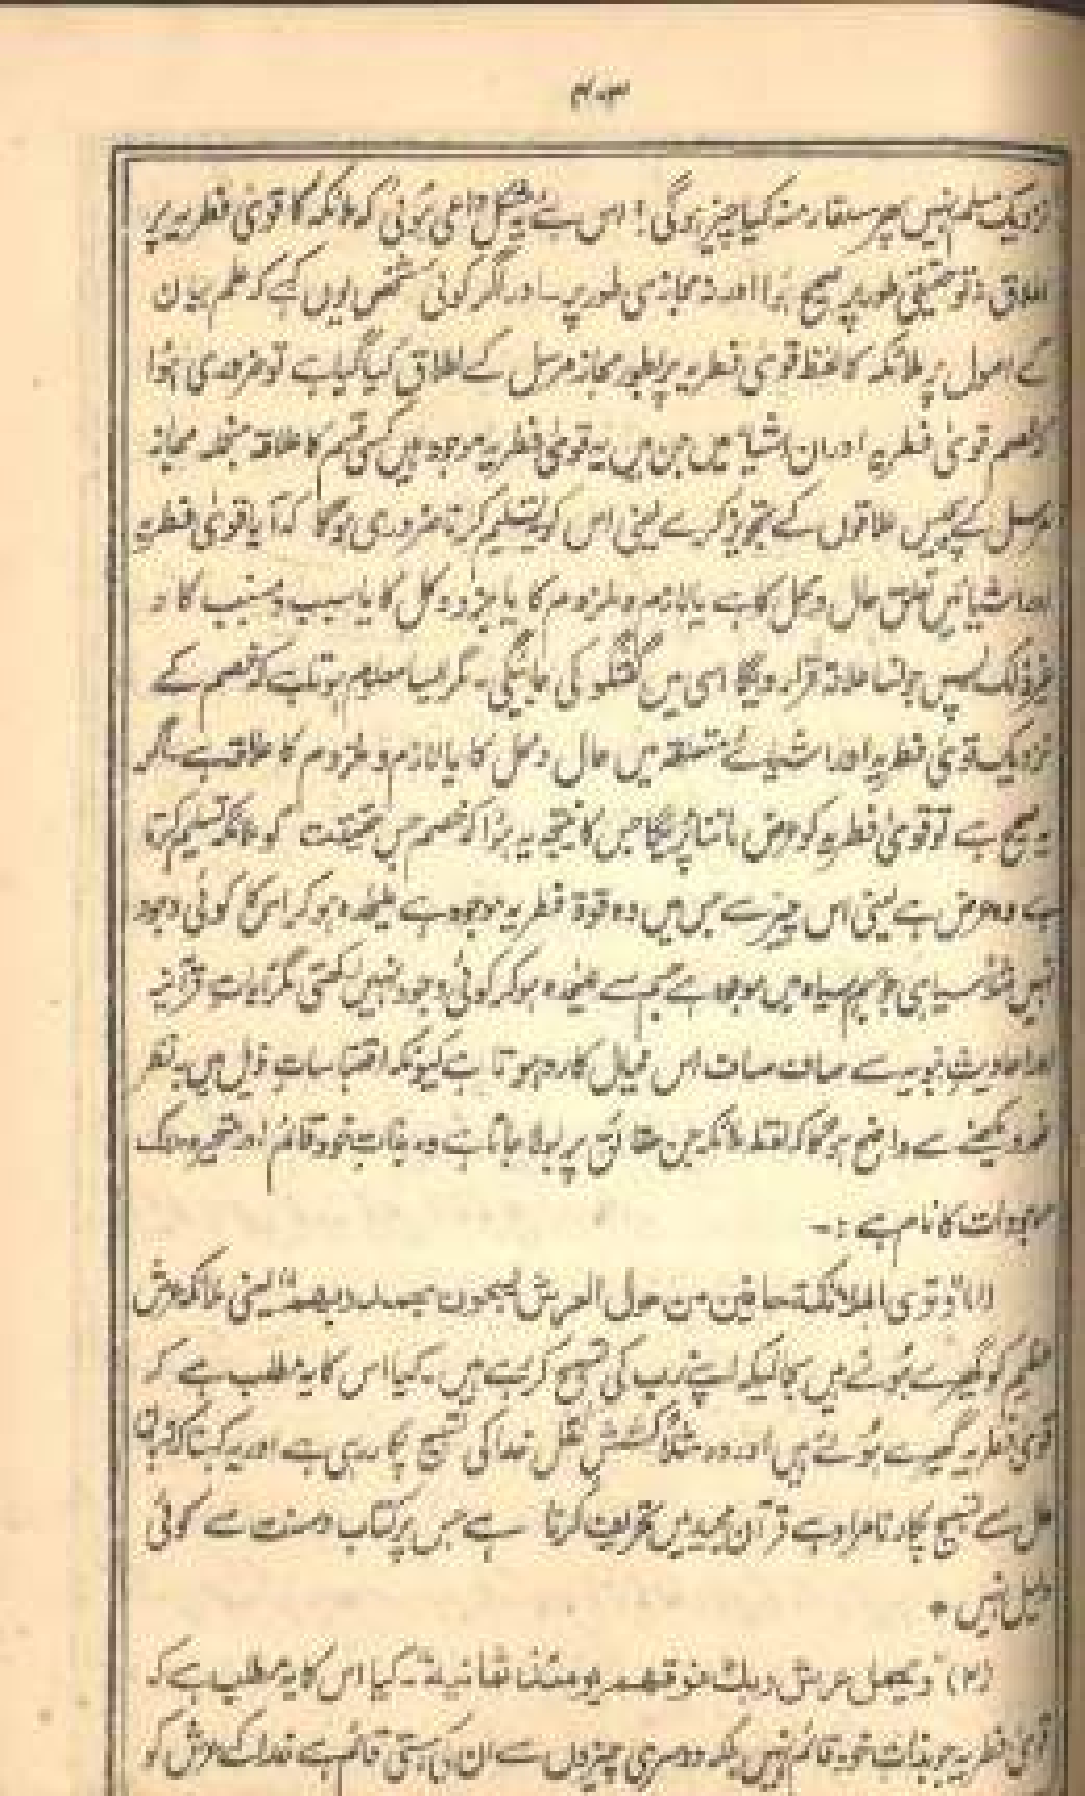 نزدیک مسلم نہیں پھر مستعار منہ کیا چیز ہوگی؟ اس لئے یہ مشکل واقع ہوئی کہ ملائکہ کا قویٰ فطریہ پر
اطلاق نہ تو حقیقی طور پر صحیح ہوا اور نہ مجازی طور پر۔ اور اگر کوئی شخص یوں کہے کہ علم بیان
کے اصول پر ملائکہ کا لفظ قویٰ فطریہ پر بطور مجاز مرسل کے اطلاق کیا گیا ہے تو ضروری ہوا
کہ خصم قویٰ فطریہ اور ان اشیا میں جن میں یہ قویٰ فطریہ موجود ہیں کسی قسم کا علاقہ منجملہ مجاز
مرسل کے پچیس علاقوں کے تجویز کرے یعنی اس کو یہ تسلیم کرنا ضروری ہوگا کہ آیا قویٰ فطریہ
اور اشیا میں تعلق حال و محل کا ہے یا لازم و ملزوم کا یا جزو و کل کا یا سبب و مسبب کا و
غیر ذلک پس جونسا علاقہ قرار دیگا اسی میں گفتگو کی جائیگی۔ مگر ایسا معلوم ہوتا ہے کہ خصم کے
نزدیک قویٰ فطریہ اور اشیائے متعلقہ میں حال و محل کا یا لازم و ملزوم کا علاقہ ہے۔ اگر
یہ صحیح ہے تو قویٰ فطریہ کو عرض ماننا پڑیگا جس کا نتیجہ یہ ہوا کہ خصم جس حقیقت کو ملائکہ تسلیم کرتا
ہے وہ عرض ہے یعنی اس چیز سے جس میں وہ قوۃ فطریہ موجود ہے علیحدہ ہو کر اس کا کوئی وجود
نہیں مثلاً سیاہی جو جسم سیاہ میں موجود ہے جسم سے علیحدہ ہوکر کوئی وجود نہیں رکھتی مگر آیات قرآنیہ
اور احادیث نبویہ سے صاف صاف اس خیال کا رد ہوتا ہے کیونکہ اقتباسات ذیل میں بہ نظر
غور دیکھنے سے واضح ہوگا کہ لفظ ملائکہ جن حقائق پر بولا جاتا ہے وہ بذات خود قائم اور متحیر
موجودات کا نام ہے :-
(۱) "وتری الملائکۃ حافین من حول العرش یسبحون بحمد ربھم" یعنی ملائکہ عرش
عظیم کو گھیرے ہوئے ہیں بحالیکہ اپنے رب کی تسبیح کر رہے ہیں۔ کیا اس کا یہ مطلب ہے کہ
قویٰ فطریہ گھیرے ہوئے ہیں اور وہ مثلاً کشش ثقل خدا کی تسبیح پکار رہی ہے اور یہ کہنا کہ زبان
حال سے تسبیح پکارنا مراد ہے قرآن مجید میں تحریف کرنا ہے جس پر کتاب و سنت سے کوئی
دلیل نہیں *
(۲) "ویحمل عرش ربک فوقھم یومئذ ثمانیۃ"۔ کیا اس کا یہ مطلب ہے کہ
قویٰ فطریہ جو بذات خود قائم نہیں بلکہ دوسری چیزوں سے ان کی ہستی قائم ہے خدا کے عرش کو